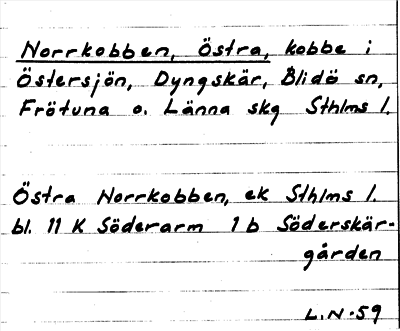 Norrkobben, Östra, kobbe i
Östersjön, Dyngskär, Blidö sn,
Frötuna o. Länna skg Sthlms l.
Östra Norrkobben, ek Sthlms l.
bl. 11 K Söderarm 1 b Söderskär-
gården
L.N-59